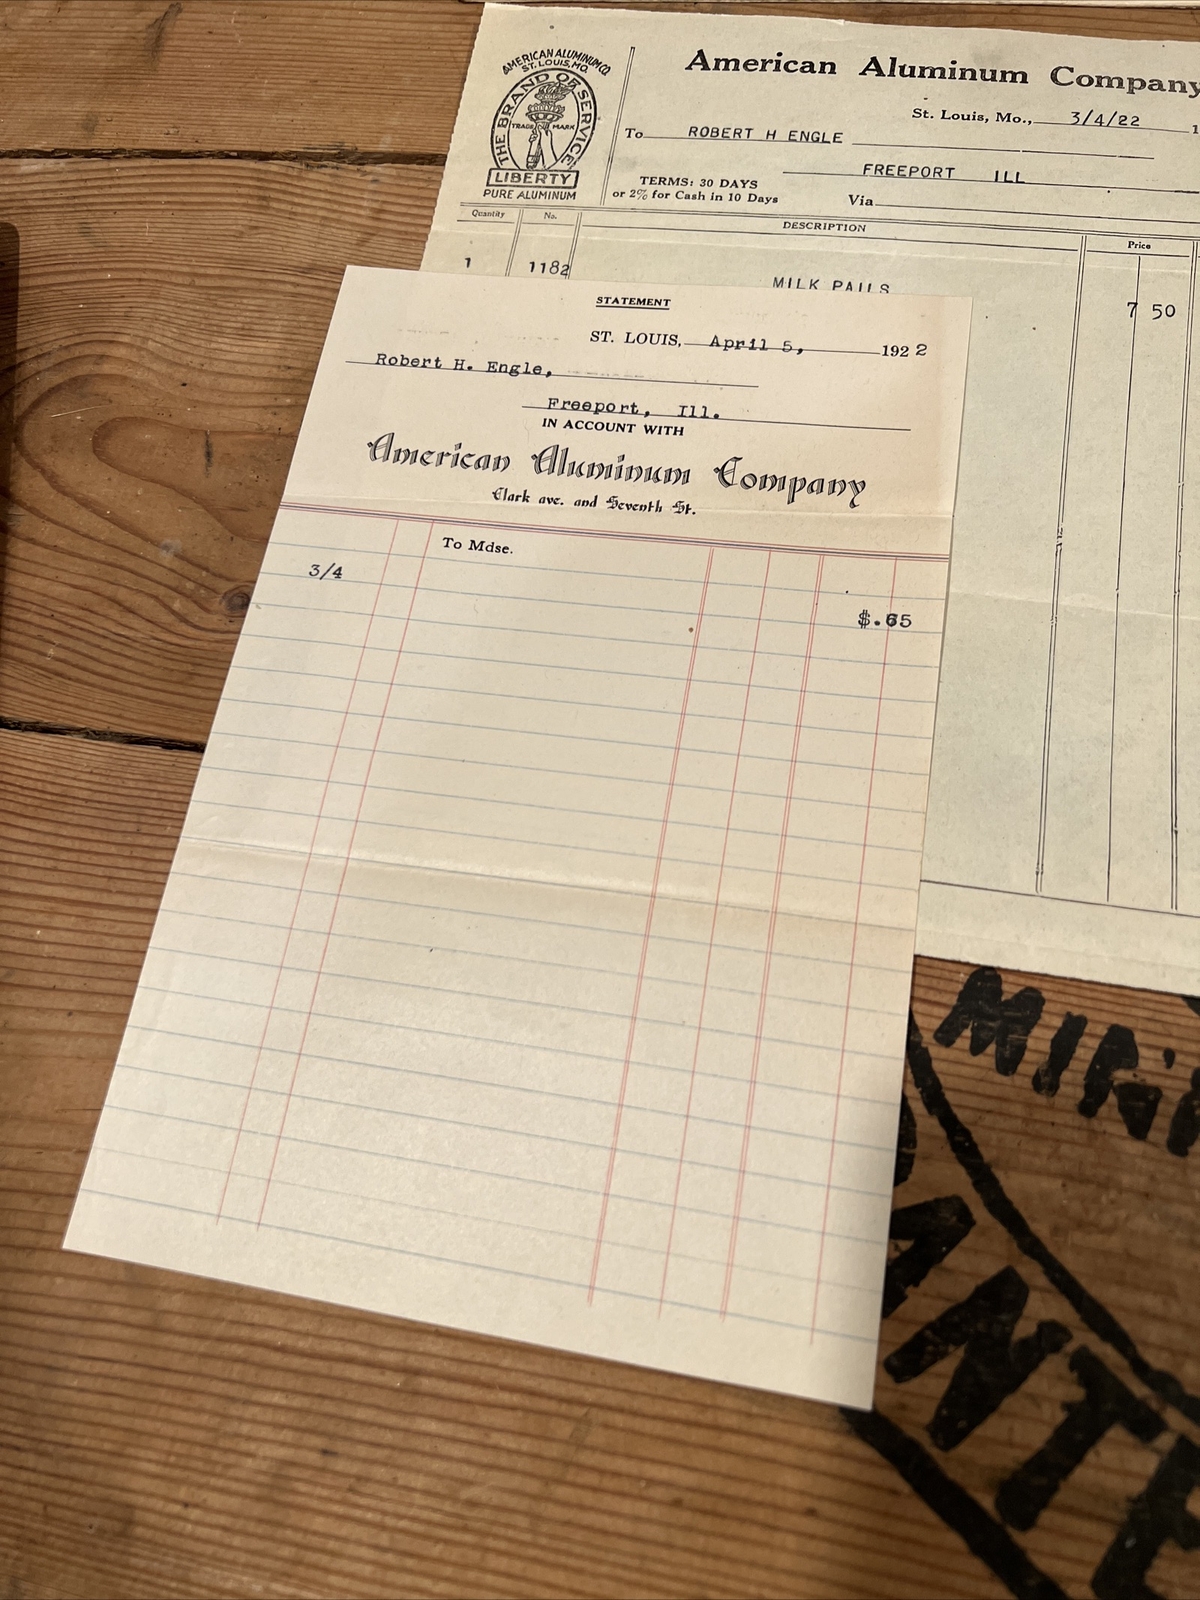 AMERICAN ALUMINUM CO.
ST. LOUIS, MO.
THE BRAND OF SERVICE
TRADE MARK
LIBERTY
PURE ALUMINUM
American Aluminum Company
St. Louis, Mo., 3/4/22 1
To ROBERT H ENGLE
FREEPORT ILL
TERMS: 30 DAYS
or 2% for Cash in 10 Days
Via
Quantity No. DESCRIPTION Price
1 1182 MILK PAILS 7 50
STATEMENT
ST. LOUIS, April 5, 1922
Robert H. Engle,
Freeport, Ill.
IN ACCOUNT WITH
American Aluminum Company
Clark ave. and Seventh St.
To Mdse.
3/4
$.65